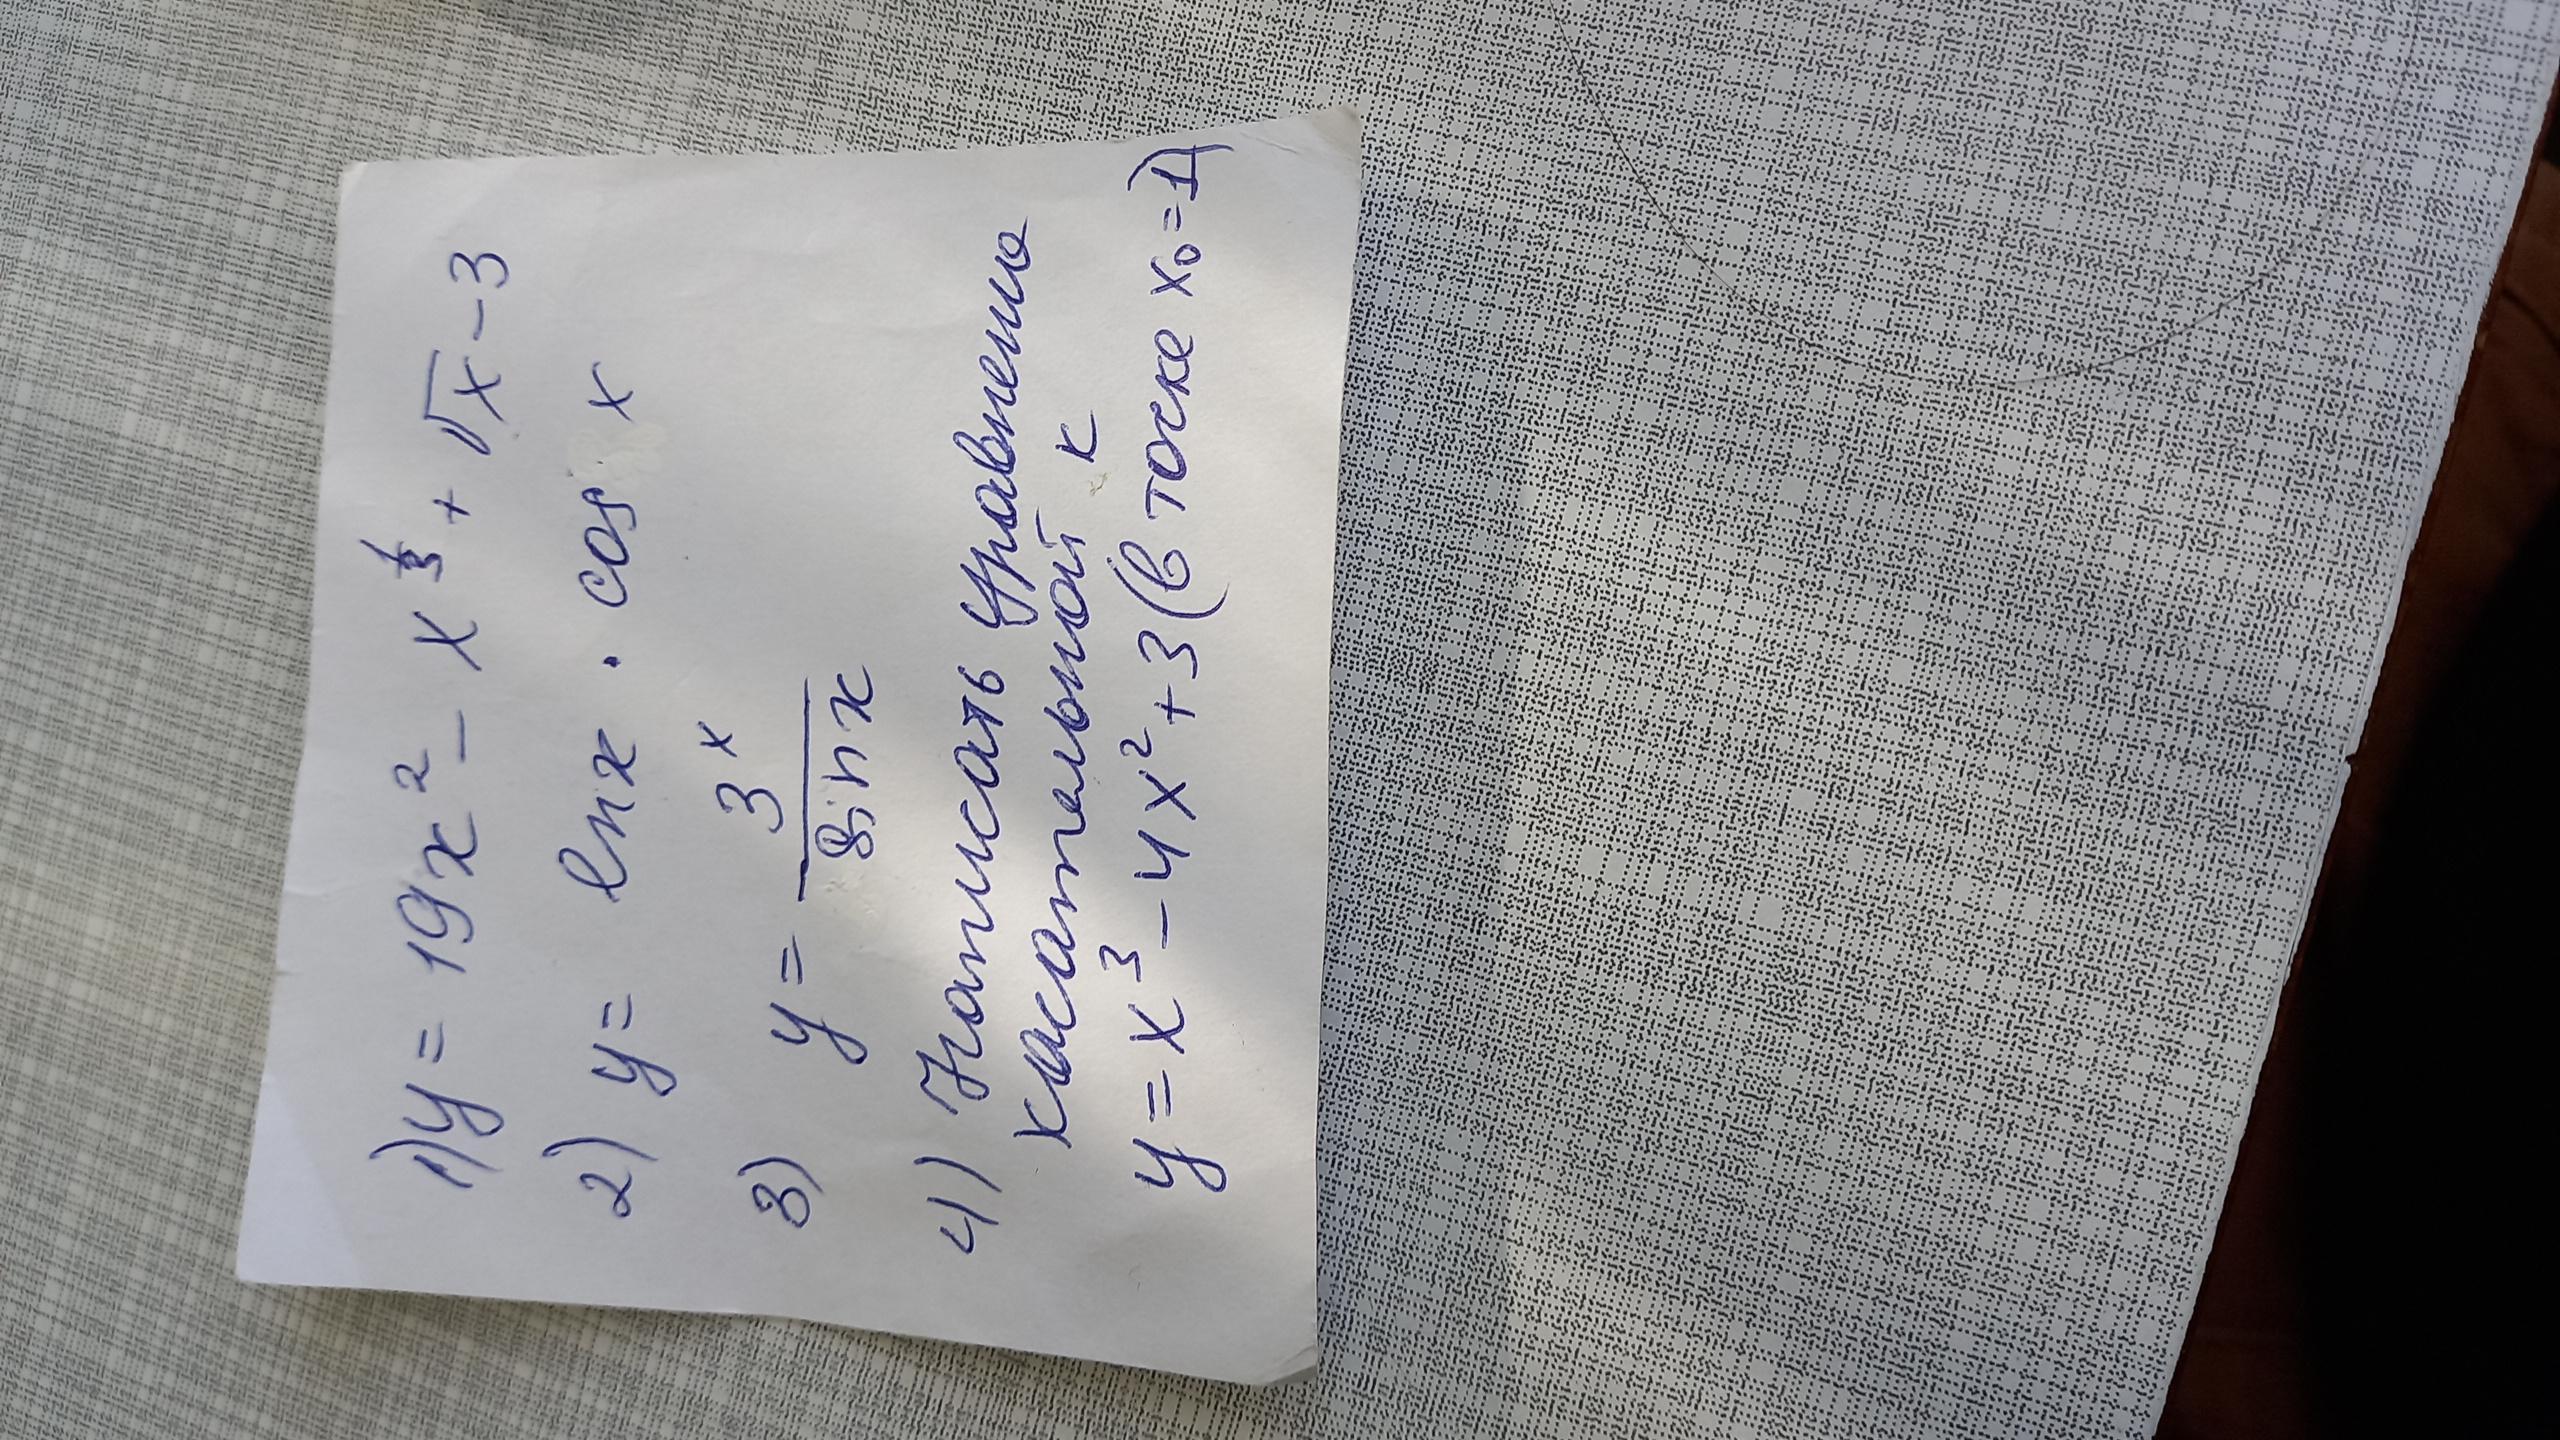 1) y = 19x² - x^⅓ + √x - 3
2) y = lnx · cos x
3) y = 3^x / sin x
4) Написать уравнению
касательной к
y = x³ - 4x² + 3 (в точке x₀ = 1)